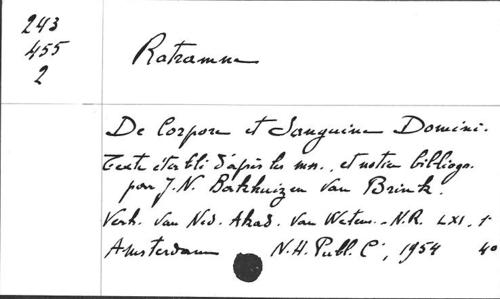 243
455
2
Ratramne
De Corpore et Sanguine Domini.
Texte établi d'après les mss. et notice bibliogr.
par J.N. Bakhuizen van Brink.
Verh. van Ned. Akad. van Wetens. - N.R. LXI, 1.
Amsterdam N.H. Publ. C°, 1954 4°